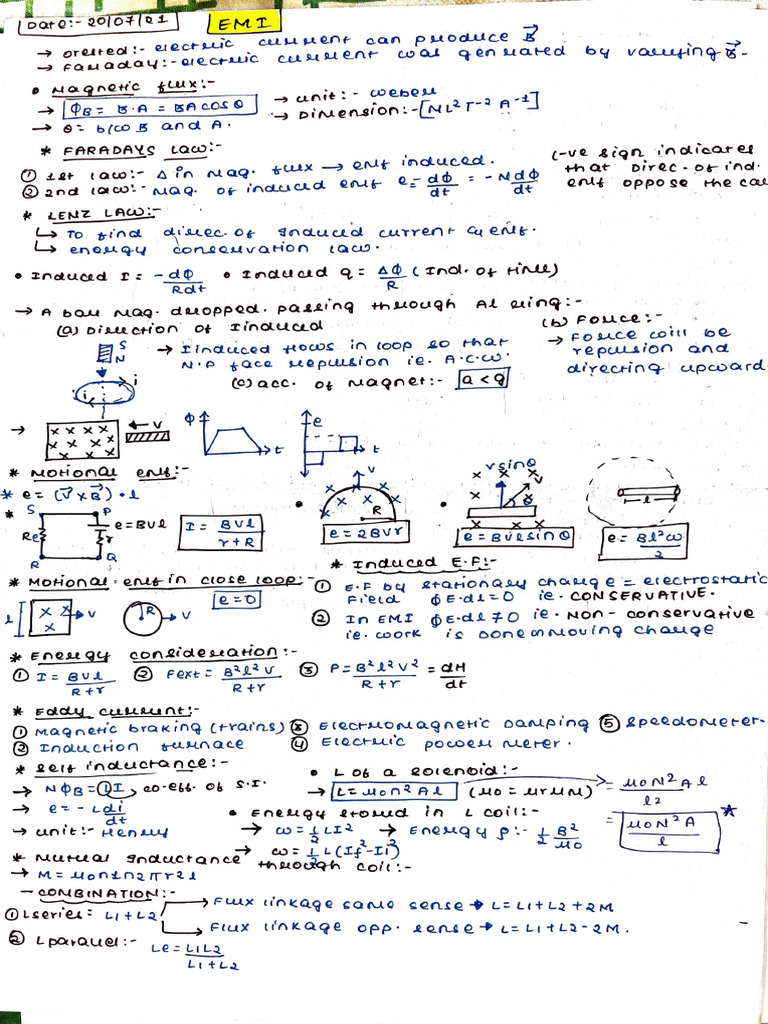 Date:- 20/07/21 EMI
→ Orested:- electric current can produce B⃗
→ Faraday:- electric current was generated by varying B⃗.
• Magnetic flux:-
→ ΦB = B.A = BA cosθ → unit:- weber
→ θ = b/w B and A. → Dimension:- [ML²T⁻²A⁻¹]
* FARADAYS LAW:-
① 1st law:- Δ in Mag. flux → emf induced.
② 2nd law:- Mag. of induced emf e = -dΦ/dt = -NdΦ/dt
(-ve sign indicates
that direc. of ind.
emf oppose the cau
* LENZ LAW:-
↳ To find direc. of induced current & emf.
↳ energy conservation law.
• Induced I = -dΦ/Rdt • Induced q = ΔΦ/R (Ind. of time)
→ A bar mag. dropped. passing through Al ring:-
(a) Direction of Iinduced
→ Iinduced flows in loop so that
N.P face repulsion ie. A.C.W.
(b) Force:-
→ Force will be
repulsion and
directing upward.
(c) acc. of magnet:- a < g
S
N
i
i
→ x x x x x x x x x x x ← v Φ t e t
* Motional emf:-
* e = (V⃗ × B⃗) • l
* S P e = BVl r R Q Re
I = BVl/r+R
• x x x x x v R e = 2BVr
• x x x x x x vsinθ v θ e = BVlsinθ
l e = Bl²ω/2
* Motional emf in close loop:- e = 0
l x x x → v R → v
* Induced E.F:-
① E.F by stationary charge = electrostatic
field ∮E.dl = 0 ie. CONSERVATIVE.
② In EMI ∮E.dl ≠ 0 ie. NON-conservative
ie. work is done in moving charge
* Energy consideration:-
① I = BVl/R+r ② Fext = B²l²V/R+r ③ P = B²l²V²/R+r = dH/dt
* Eddy current:-
① Magnetic braking (trains) ③ Electromagnetic Damping ⑤ Speedometer.
② Induction furnace ④ Electric power meter.
* Self inductance:-
→ NΦB = LI → co-eff. of S.I.
→ e = -L di/dt
→ unit:- Henry
• L of a solenoid:-
→ L = μ0n²Al (μ0 = μrμM) = μ0N²Al/l2
= μ0N²A/l *
• Energy stored in L coil:-
→ w = 1/2 LI² → Energy ρ:- 1/2 B²/μ0
→ w = 1/2 L(If² - Ii²)
* Mutual inductance through coil:-
→ M = μ0n1n2πr²l
- COMBINATION:-
① Lseries = L1+L2 → Flux linkage same sense → L = L1+L2+2M
↳ Flux linkage opp. sense → L = L1+L2-2M.
② Lparallel:- Le = L1L2/L1+L2